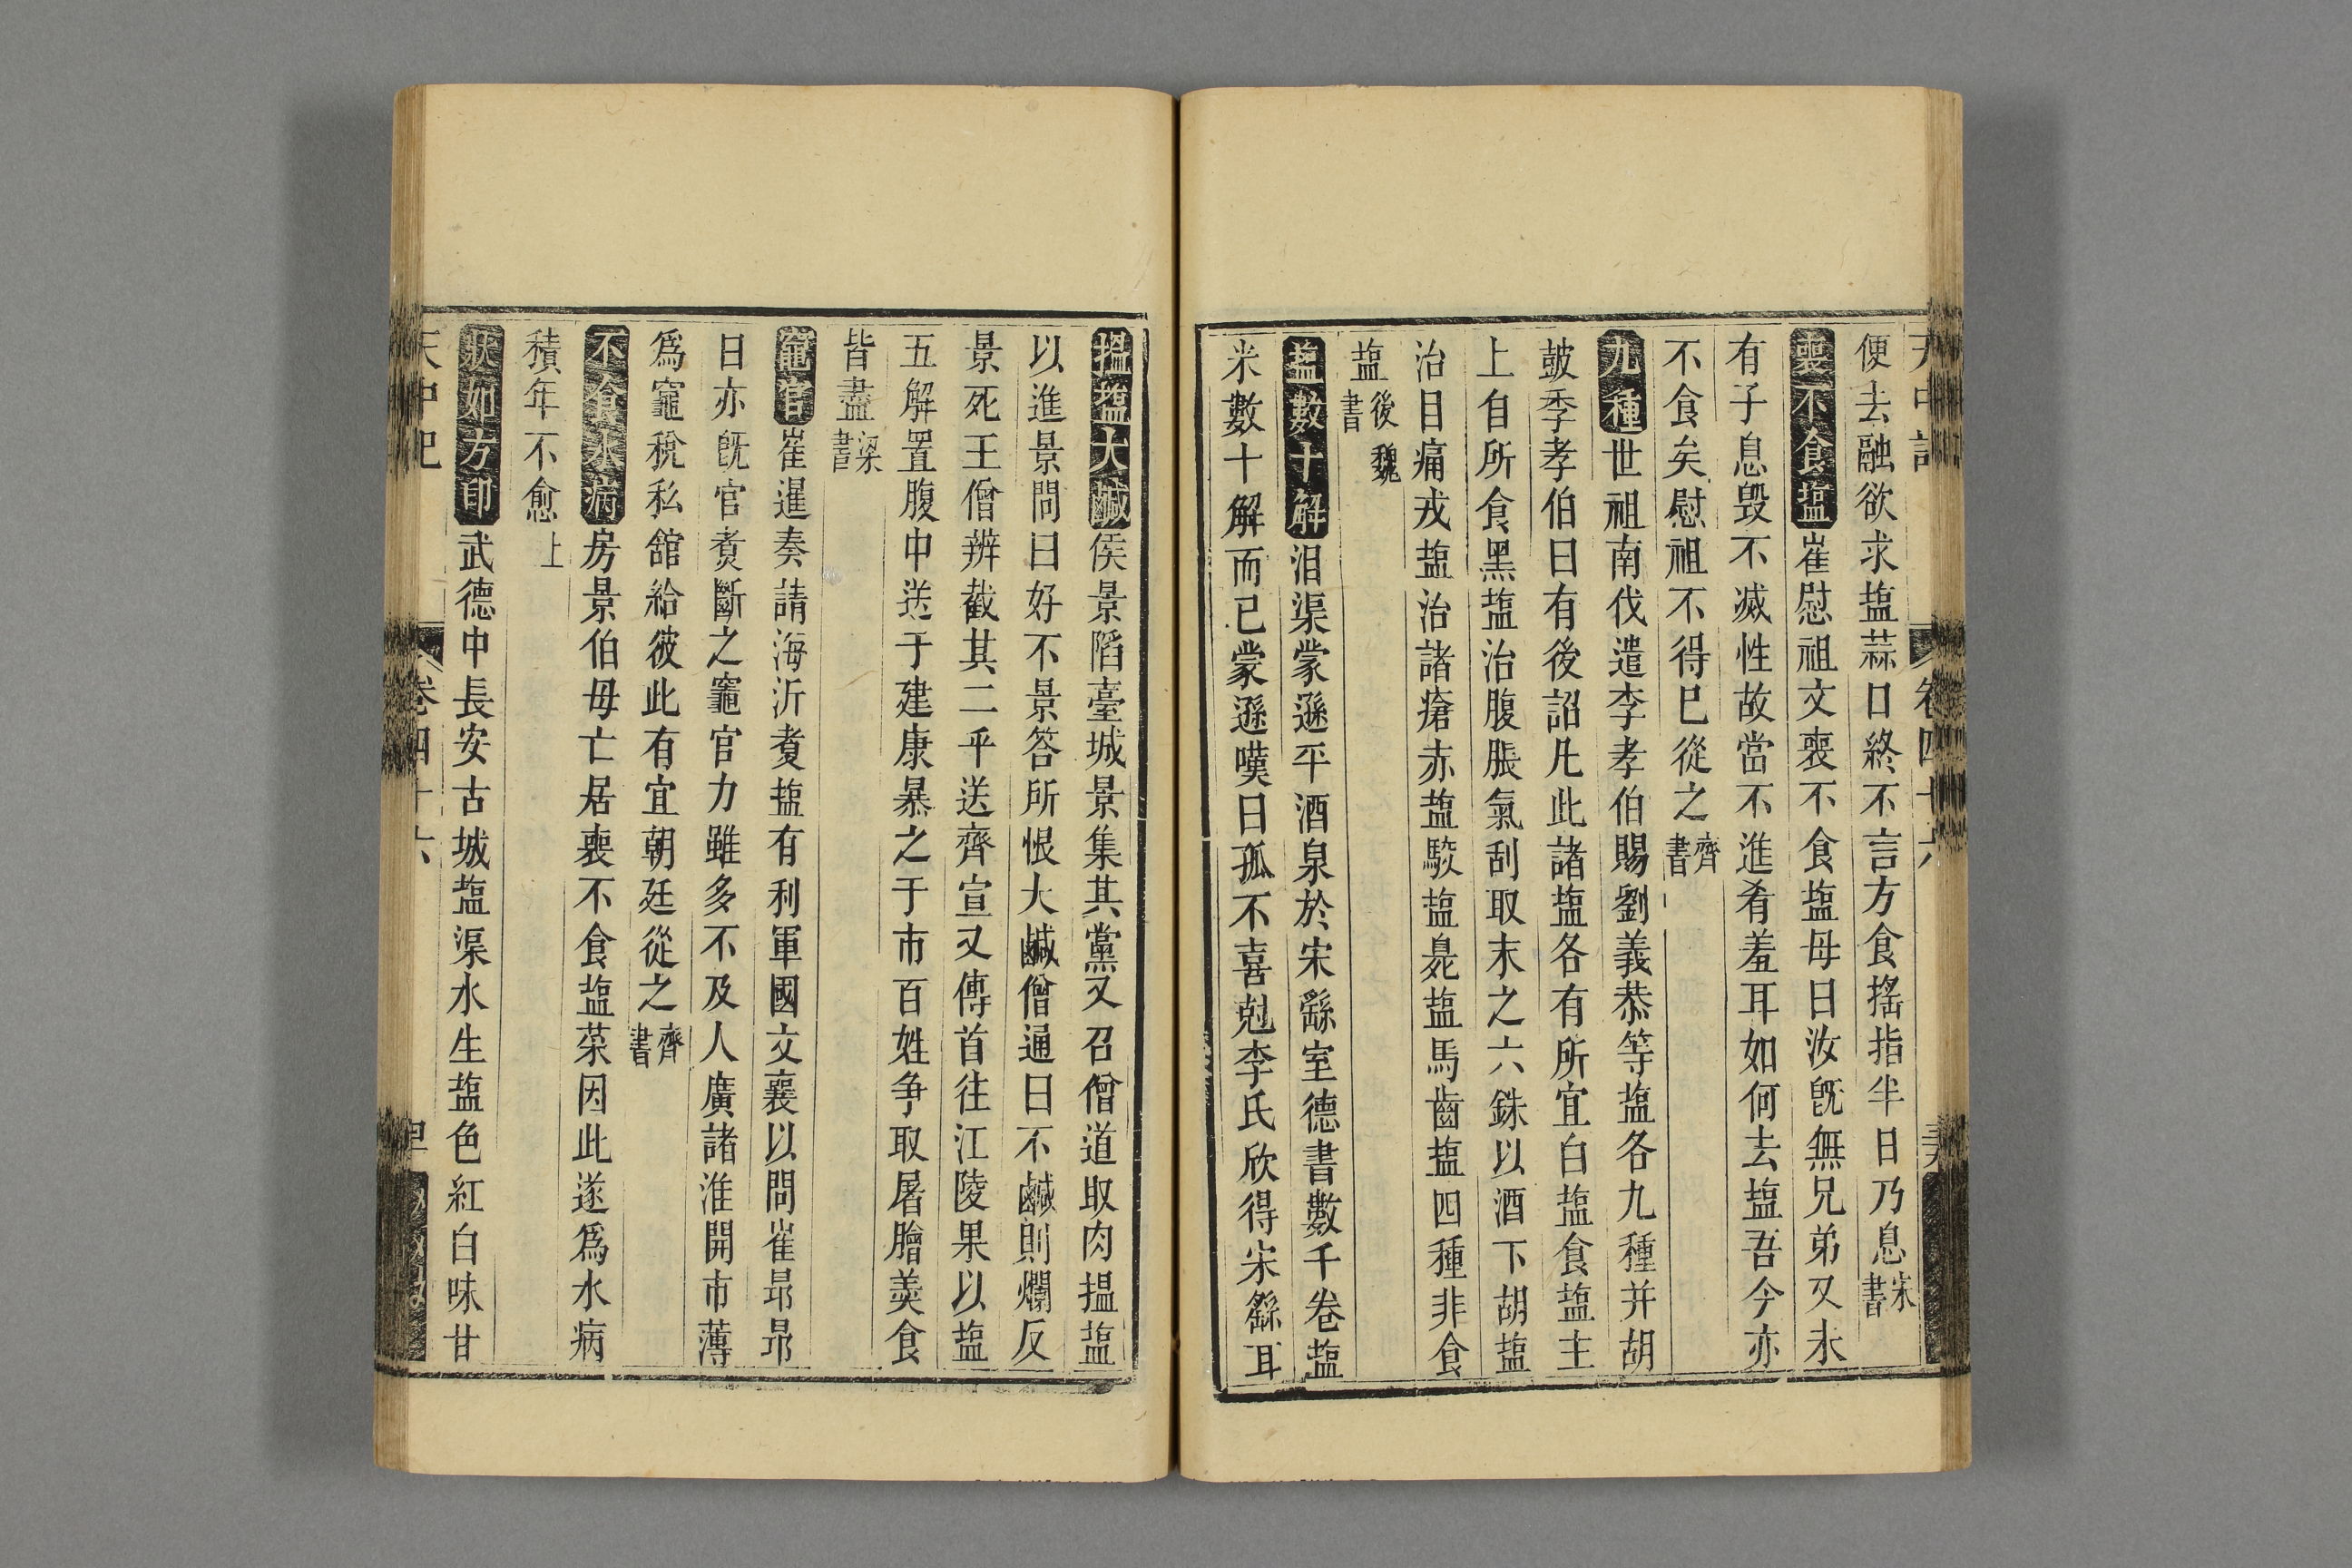 天中記 卷四十六
便去融欲求塩蒜口終不言方食搖指半日乃息宋書
喪不食塩崔慰祖文喪不食塩母曰汝既無兄弟又未
有子息毀不滅性故當不進肴羞耳如何去塩吾今亦
不食矣慰祖不得已從之齊書
九種世祖南伐遣李孝伯賜劉義恭等塩各九種并胡
豉季孝伯曰有後詔凡此諸塩各有所宜白塩食塩主
上自所食黑塩治腹脹氣刮取末之六銖以酒下胡塩
治目痛戎塩治諸瘡赤塩駮塩臰塩馬齒塩四種非食
塩後魏書
塩數十斛沮渠蒙遜平酒泉於宋繇室德書數千卷塩
米數十斛而已蒙遜嘆曰孤不喜剋李氏欣得宋繇耳
搵塩大鹹侯景陷臺城景集其黨又召僧道取肉搵塩
以進景問曰好不景答所恨大鹹僧通曰不鹹則爛反
景死王僧辨截其二手送齊宣又傳首往江陵果以塩
五斛置腹中送于建康暴之于市百姓爭取屠膾羹食
皆盡梁書
竈官崔暹奏請海沂煑塩有利軍國文襄以問崔昂昂
曰亦既官煑斷之竈官力雖多不及人廣諸淮開市薄
爲竈稅私舘給彼此有宜朝廷從之齊書
不食水病房景伯母亡居喪不食塩菜因此遂爲水病
積年不愈上
狀如方印武德中長安古城塩渠水生塩色紅白味甘
天中記 卷四十六